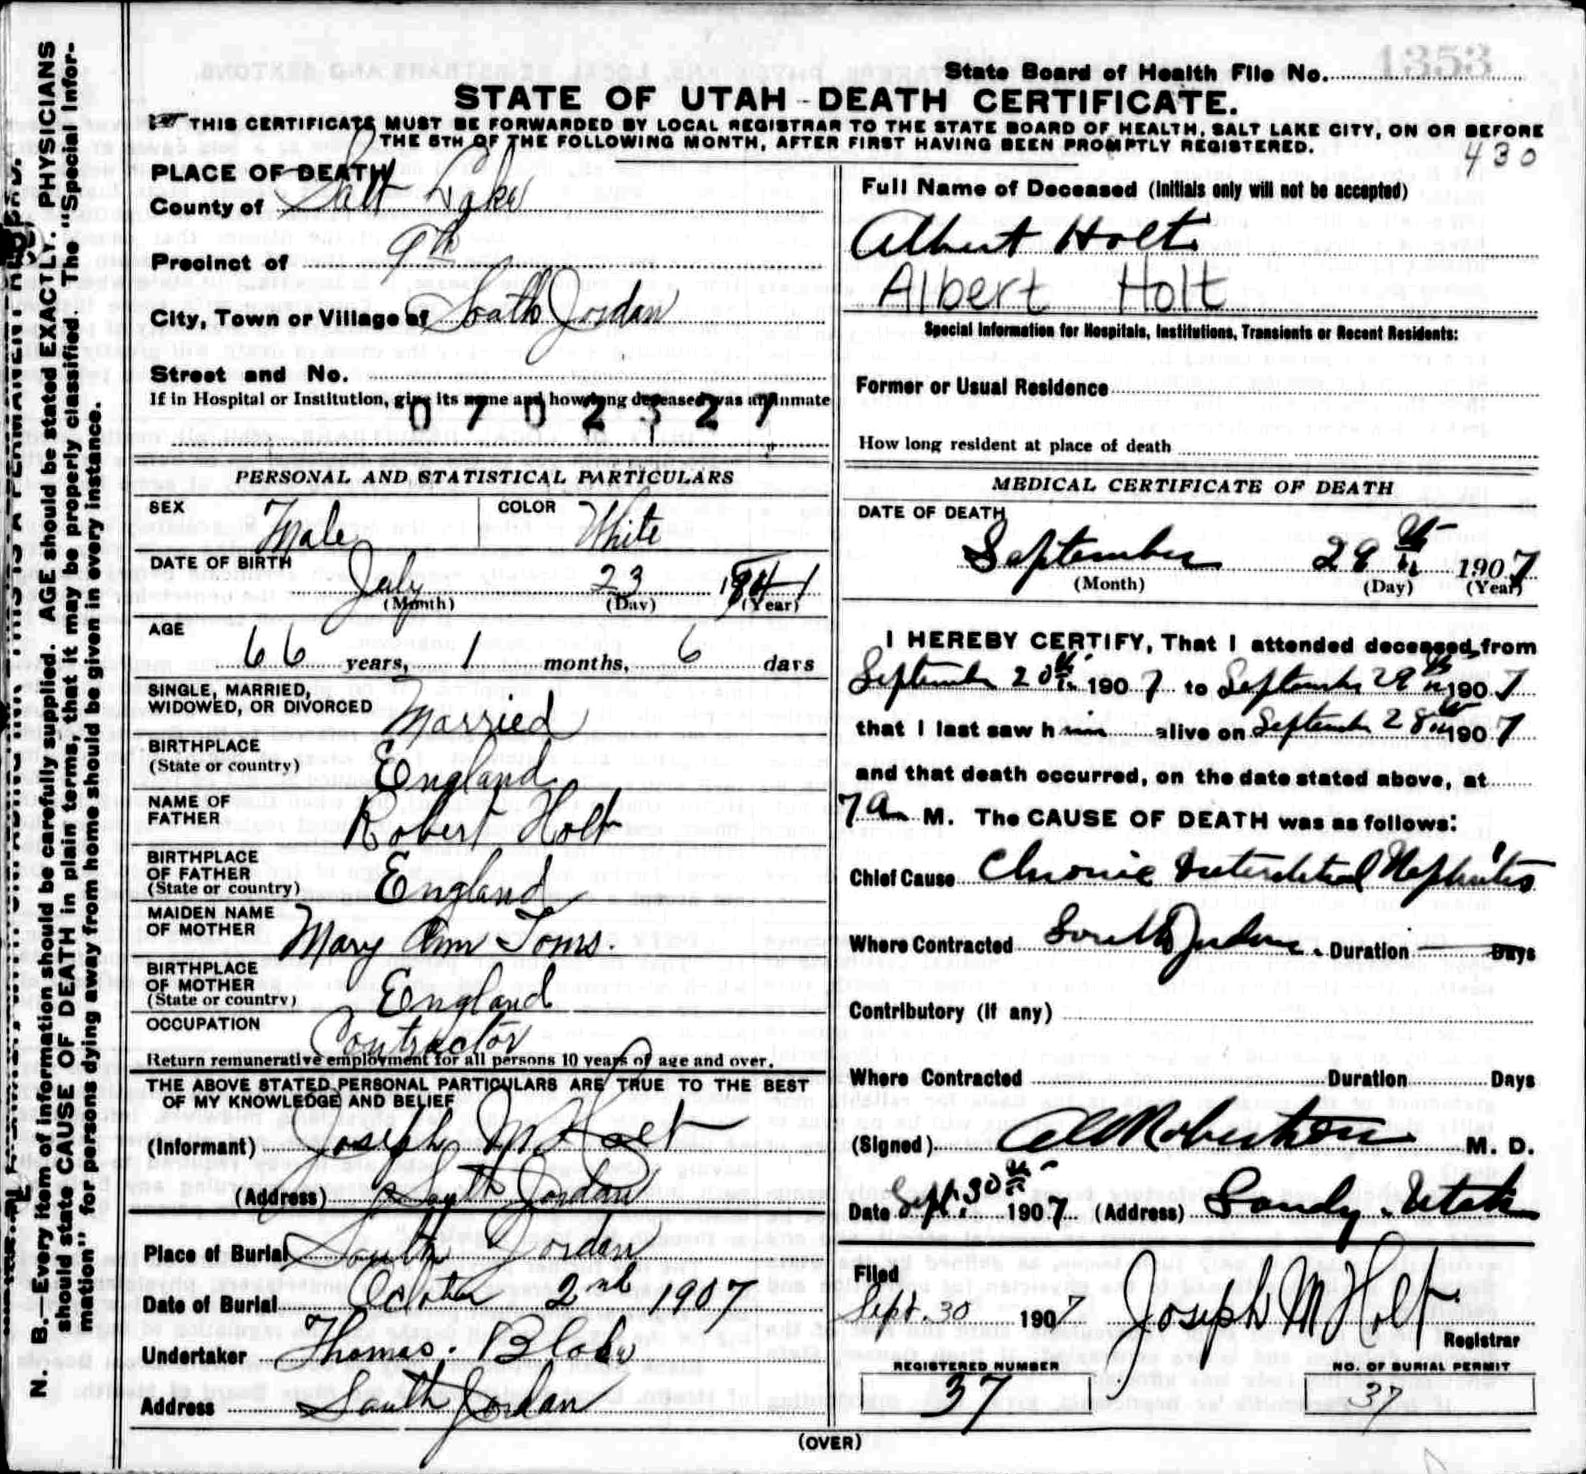 1353
State Board of Health File No.
STATE OF UTAH - DEATH CERTIFICATE.
THIS CERTIFICATE MUST BE FORWARDED BY LOCAL REGISTRAR TO THE STATE BOARD OF HEALTH, SALT LAKE CITY, ON OR BEFORE
THE 5TH OF THE FOLLOWING MONTH, AFTER FIRST HAVING BEEN PROMPTLY REGISTERED.
430
PLACE OF DEATH
County of Salt Lake
Precinct of 9th
City, Town or Village of South Jordan
Street and No.
If in Hospital or Institution, give its name and how long deceased was an inmate
0702327
PERSONAL AND STATISTICAL PARTICULARS
SEX Male COLOR White
DATE OF BIRTH July 23 1841
(Month) (Day) (Year)
AGE
66 years, 1 months, 6 days
SINGLE, MARRIED,
WIDOWED, OR DIVORCED Married
BIRTHPLACE
(State or country) England
NAME OF
FATHER Robert Holt
BIRTHPLACE
OF FATHER
(State or country) England
MAIDEN NAME
OF MOTHER Mary Ann Toms.
BIRTHPLACE
OF MOTHER
(State or country) England
OCCUPATION Contractor
Return remunerative employment for all persons 10 years of age and over.
THE ABOVE STATED PERSONAL PARTICULARS ARE TRUE TO THE BEST
OF MY KNOWLEDGE AND BELIEF
(Informant) Joseph M Holt
(Address) South Jordan
Place of Burial South Jordan
Date of Burial 2nd 1907
Undertaker Thomas. Blake
Address South Jordan
Full Name of Deceased (Initials only will not be accepted)
Albert Holt
Albert Holt
Special Information for Hospitals, Institutions, Transients or Recent Residents:
Former or Usual Residence
How long resident at place of death
MEDICAL CERTIFICATE OF DEATH
DATE OF DEATH
September 29th 1907
(Month) (Day) (Year)
I HEREBY CERTIFY, That I attended deceased from
September 20th 1907 to September 29th 1907
that I last saw him alive on September 28th 1907
and that death occurred, on the date stated above, at
7 a M. The CAUSE OF DEATH was as follows:
Chief Cause Chronic Interstitial Nephritis
Where Contracted South Jordan. Duration Days
Contributory (if any)
Where Contracted Duration Days
(Signed) Robertson M. D.
Date Sept. 30th 1907 (Address) Sandy. Utah
Filed
Sept. 30 1907 Joseph M Holt
Registrar
REGISTERED NUMBER NO. OF BURIAL PERMIT
37 37
(OVER)
N. B. Every item of information should be carefully supplied. AGE should be stated EXACTLY. PHYSICIANS
should state CAUSE OF DEATH in plain terms, that it may be properly classified. The "Special Infor-
mation" for persons dying away from home should be given in every instance.